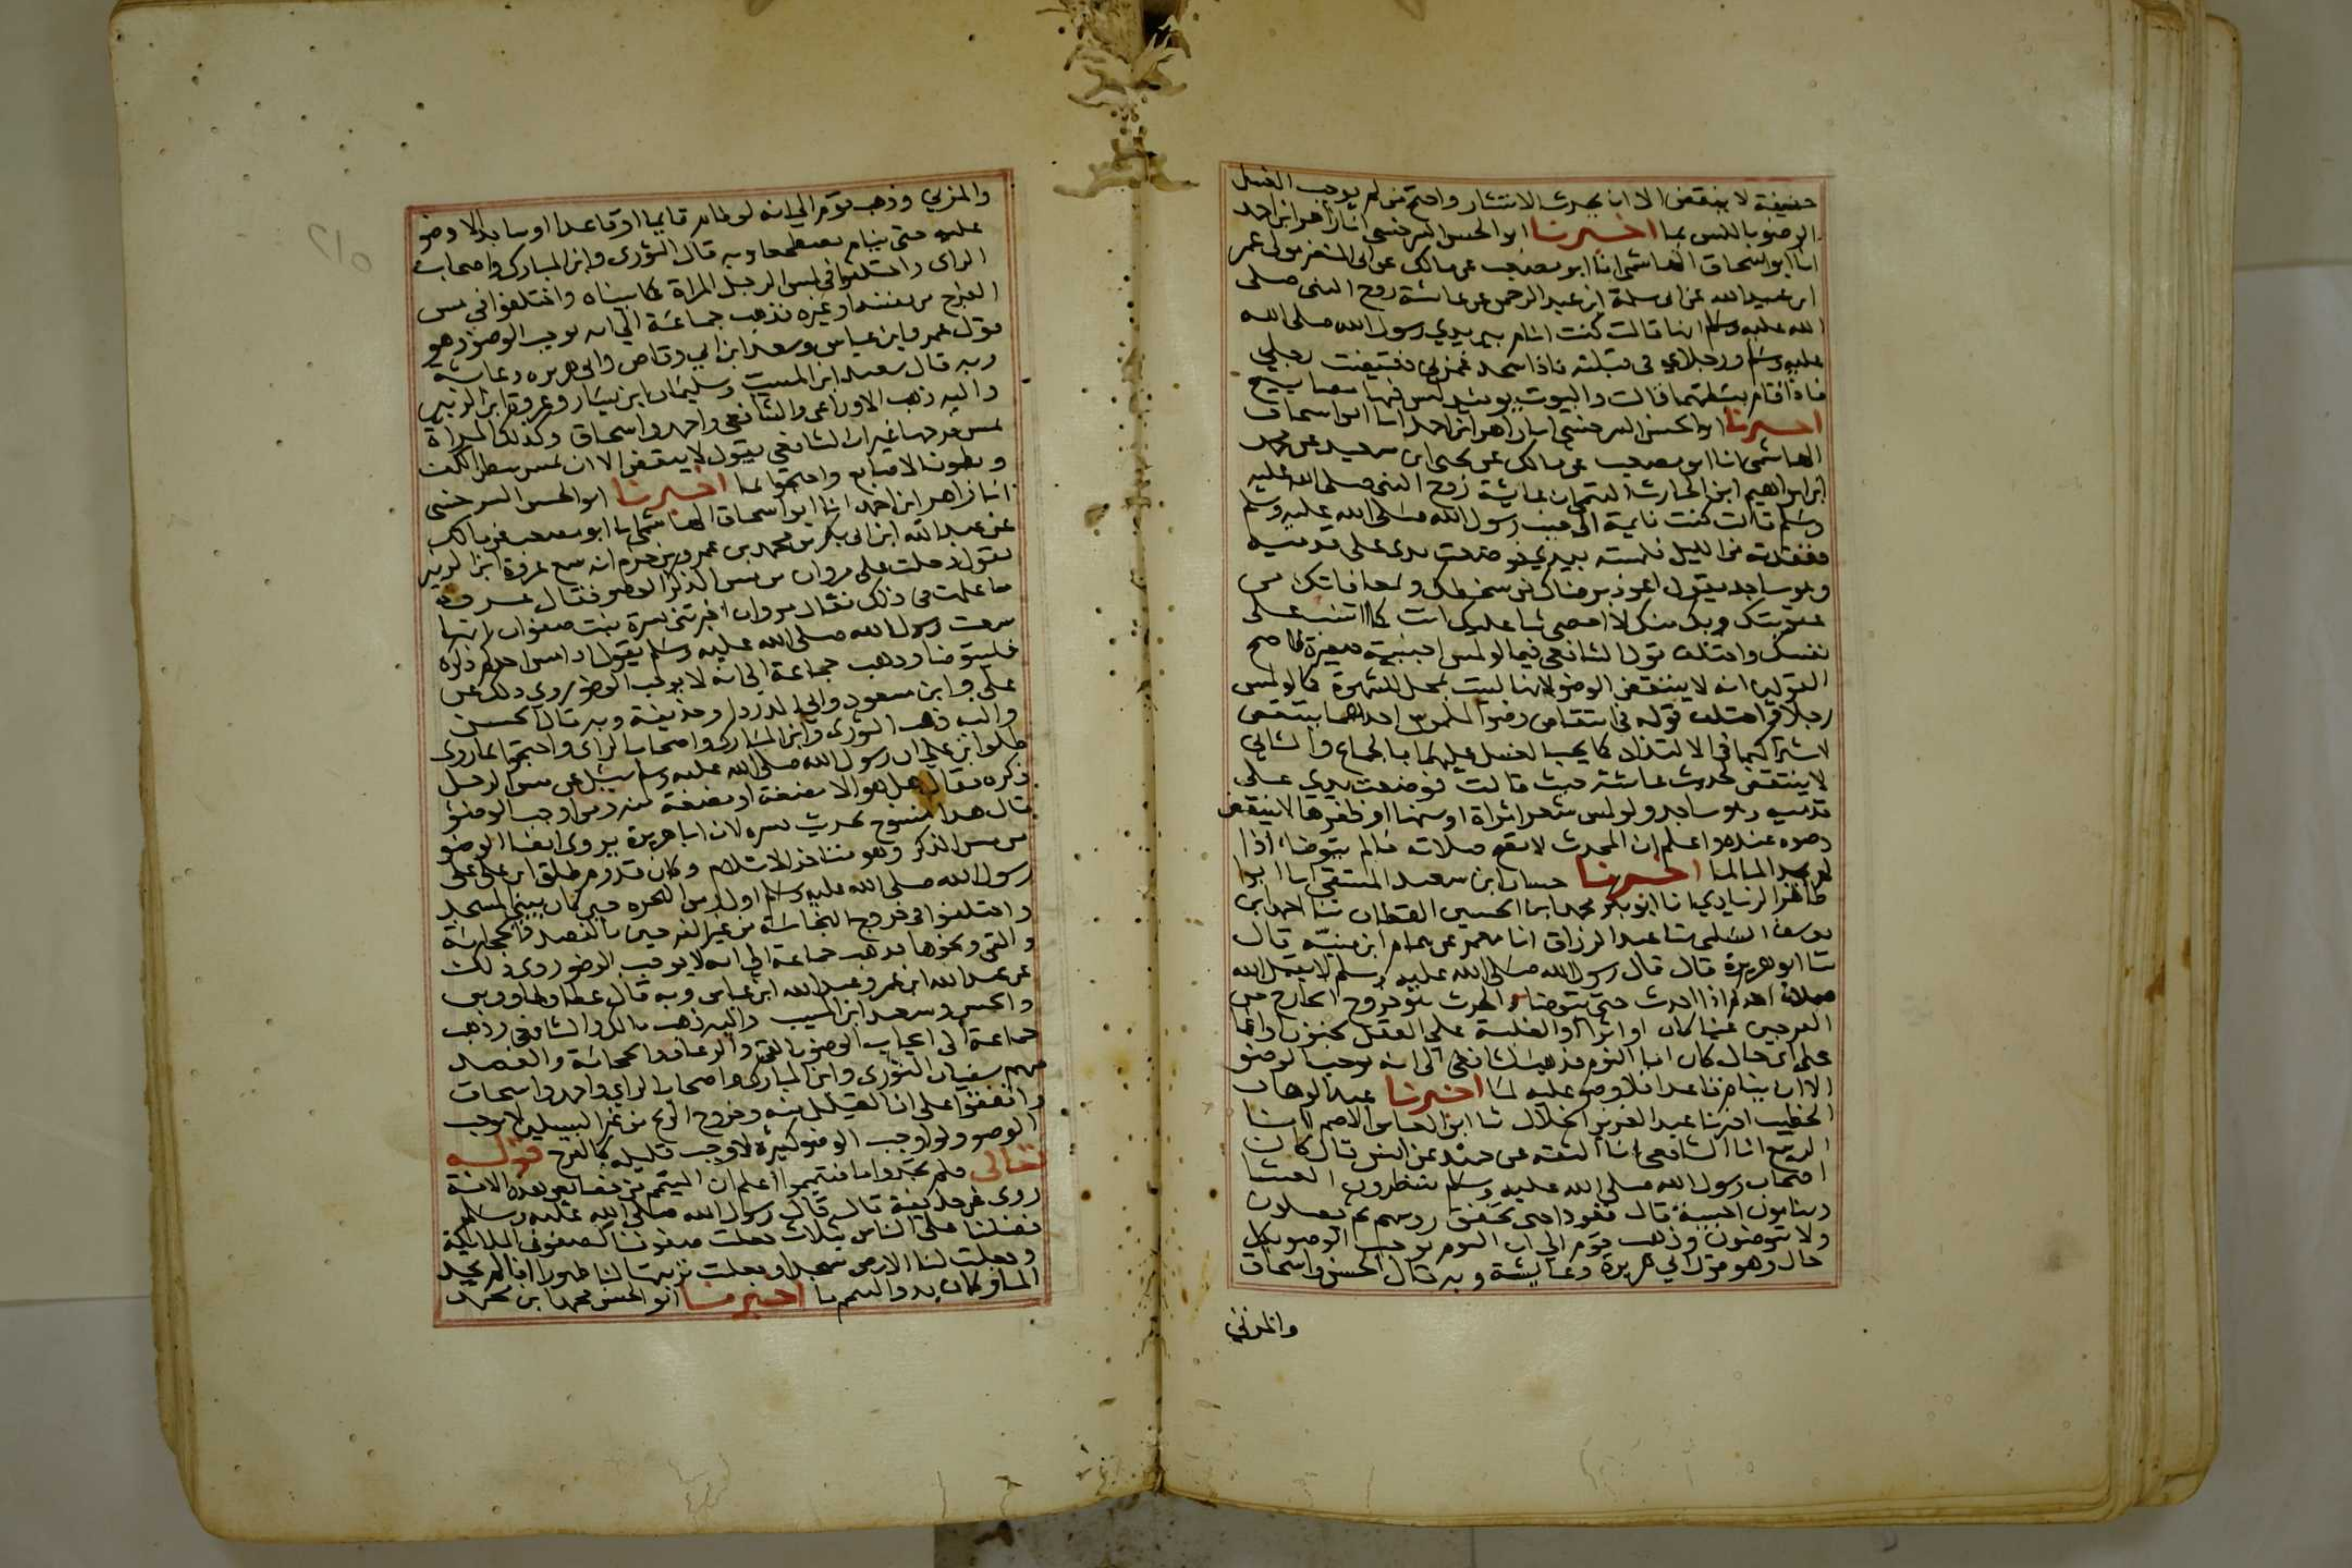 حنيفة لا ينتقض الا ان يحدث الانتشار واحتج من لم يوجب الغسل
الوضو باللمس بما اخبرنا ابو الحسن السرخسي انا زاهر ابن احمد
انا ابو اسحاق الهاشمي انا ابو مصعب عن مالك عن ابي النضر مولى عمر
ابن عبيد الله عن ابي سلمة ابن عبد الرحمن عن عائشة زوج النبي صلى
الله عليه وسلم انها قالت كنت انام بين يدي رسول الله صلى الله
عليه وسلم ورجلاي في قبلته فاذا سجد غمزني فقبضت رجلي
فاذا قام بسطتهما قالت والبيوت يوميذ ليس فيها مصابيح
اخبرنا ابو الحسن السرخسي انا زاهر ابن احمد انا ابو اسحاق
الهاشمي انا ابو مصعب عن مالك عن يحيى ابن سعيد عن محمد
ابن ابراهيم ابن الحارث التيمي ان عائشة زوج النبي صلى الله عليه
وسلم قالت كنت نايمة الى جنب رسول الله صلى الله عليه وسلم
ففقدته من الليل فلمسته بيدي فوضعت يدي على قدميه
وهو ساجد يقول اعوذ برضاك من سخطك وبمعافاتك من
عقوبتك وبك منك لا احصي ثنا عليك انت كما اثنيت على
نفسك واختلف قول الشافعي فيما لو لمس اجنبية صغيرة فاصح
القولين انه لا ينتقض الوضو لانها ليست بمحل الشهوة كما لو لمس
رجلا واختلف قوله في انتقاض وضو الملموس احدهما ينتقض
لاشتراكهما في الالتذاذ كما يجب الغسل عليهما بالجماع والثاني
لا ينتقض لحديث عائشة حيث قالت فوضعت يدي على
قدميه وهو ساجد ولو لمس شعر امراة او سنها او ظفرها لا ينتقض
وضوه عنده واعلم ان المحدث لا تصح صلاته مالم يتوضا اذا
لم يجد الما لما اخبرنا حسان ابن سعيد المنيعي انا ابو
طاهر الزيادي انا ابو بكر محمد ابن الحسين القطان ثنا احمد ابن
يوسف السلمي ثنا عبد الرزاق انا معمر عن همام ابن منبه قال
ثنا ابو هريرة قال قال رسول الله صلى الله عليه وسلم لا يقبل الله
صلاة احدكم اذا احدث حتى يتوضا والحدث هو خروج الخارج من
الفرجين عينا كان او اثرا او الغلبة على العقل بجنون او اغما
على اي حال كان اما النوم فمذهب الشافعي الى انه يوجب الوضو
الا ان ينام قاعدا فلا وضو عليه لما اخبرنا عبد الوهاب
الخطيب اخبرنا عبد العزيز الخلال ثنا ابو العباس الاصم انا
الربيع انا الشافعي انا الثقة عن حميد عن انس قال كان
اصحاب رسول الله صلى الله عليه وسلم ينتظرون العشا
وينامون احسبه قال قعودا حتى تخفق روسهم ثم يصلون
ولا يتوضئون وذهب قوم الى ان النوم يوجب الوضو بكل
حال وهو قول ابي هريرة وعايشة وبه قال الحسن واسحاق
والمزني
والمزني وذهب قوم الى انه لو نام قايما او قاعدا او ساجدا لا وضو
عليه حتى ينام مضطجعا وبه قال الثوري وابن المبارك واصحاب
الراي واختلفوا في لمس الرجل المراة كما بيناه واختلفوا في مس
الفرج من نفسه او غيره فذهب جماعة الى انه يوجب الوضو وهو
قول عمر وابن عباس وسعد ابن ابي وقاص وابي هريره وعايشة
وبه قال سعيد ابن المسيب وسليمان ابن يسار وعروة ابن الزبير
واليه ذهب الاوزاعي والشافعي واحمد واسحاق وكذلك المراة
تمس فرجها غير ان الشافعي يقول لا ينتقض الا ان تمس ببطن الكف
وبطون الاصابع واحتجوا بما اخبرنا ابو الحسن السرخسي
انا زاهر ابن احمد انا ابو اسحاق الهاشمي انا ابو مصعب عن مالك
عن عبد الله ابن ابي بكر بن محمد بن عمرو بن حزم انه سمع عروة ابن الزبير
يقول دخلت على مروان من مس الذكر الوضو فقال عروة
ما علمت في ذلك فقال مروان اخبرتني بسرة بنت صفوان انها
سمعت رسول الله صلى الله عليه وسلم يقول اذا مس احدكم ذكره
فليتوضا وذهب جماعة الى انه لا يوجب الوضو روي ذلك عن
علي وابن مسعود وابي الدرداء وحذيفة وبه قال الحسن
واليه ذهب الثوري وابن المبارك واصحاب الراي واحتجوا بما روى
طلق ابن علي ان رسول الله صلى الله عليه وسلم سيل عن مس الرجل
ذكره فقال هل هو الا مضغة او بضعة منه ومن اوجب الوضو
قال هذا منسوخ بحديث بسره لان ابا هريرة يروي ايضا الوضو
من مس الذكر وهو متاخر الاسلام وكان قدوم طلق ابن علي على
رسول الله صلى الله عليه وسلم اول زمن الهجره حين كان يبني المسجد
واختلفوا في خروج النجاسة من غير الفرجين بالفصد والحجامة
والقي ونحوها فذهب جماعة الى انه لا يوجب الوضو روي ذلك
عن عبد الله ابن عمر وعبد الله ابن عباس وبه قال عطا وطاووس
والحسن وسعيد ابن المسيب واليه ذهب مالك والشافعي وذهب
جماعة الى ايجاب الوضو بالقي والرعاف والحجامة والفصد
منهم سفيان الثوري وابن المبارك واصحاب الراي واحمد واسحاق
واتفقوا على ان القليل منه وخروج الريح من غير السبيلين لا يوجب
الوضو ولو اوجب الوضو كثيره لاوجب قليله كالفرج قوله
تعالى فلم تجدوا ما فتيمموا اعلم ان التيمم من خصايص هذه الامة
روي عن حذيفة قال قال رسول الله صلى الله عليه وسلم
فضلنا على الناس بثلاث جعلت صفوفنا كصفوف الملايكة
وجعلت لنا الارض مسجدا وجعلت تربتها لنا طهورا اذا لم نجد
الما وكان بدو التيمم ما اخبرنا ابو الحسن محمد ابن محمد